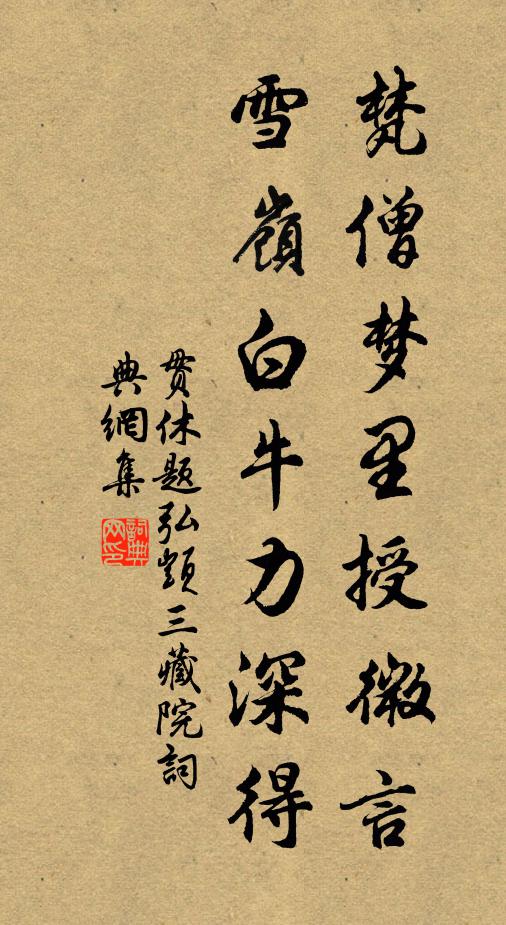 梵僧梦里授微言
雪嶺白牛力深得
贯休题弘顗三藏院詞
典網集
詞典網印